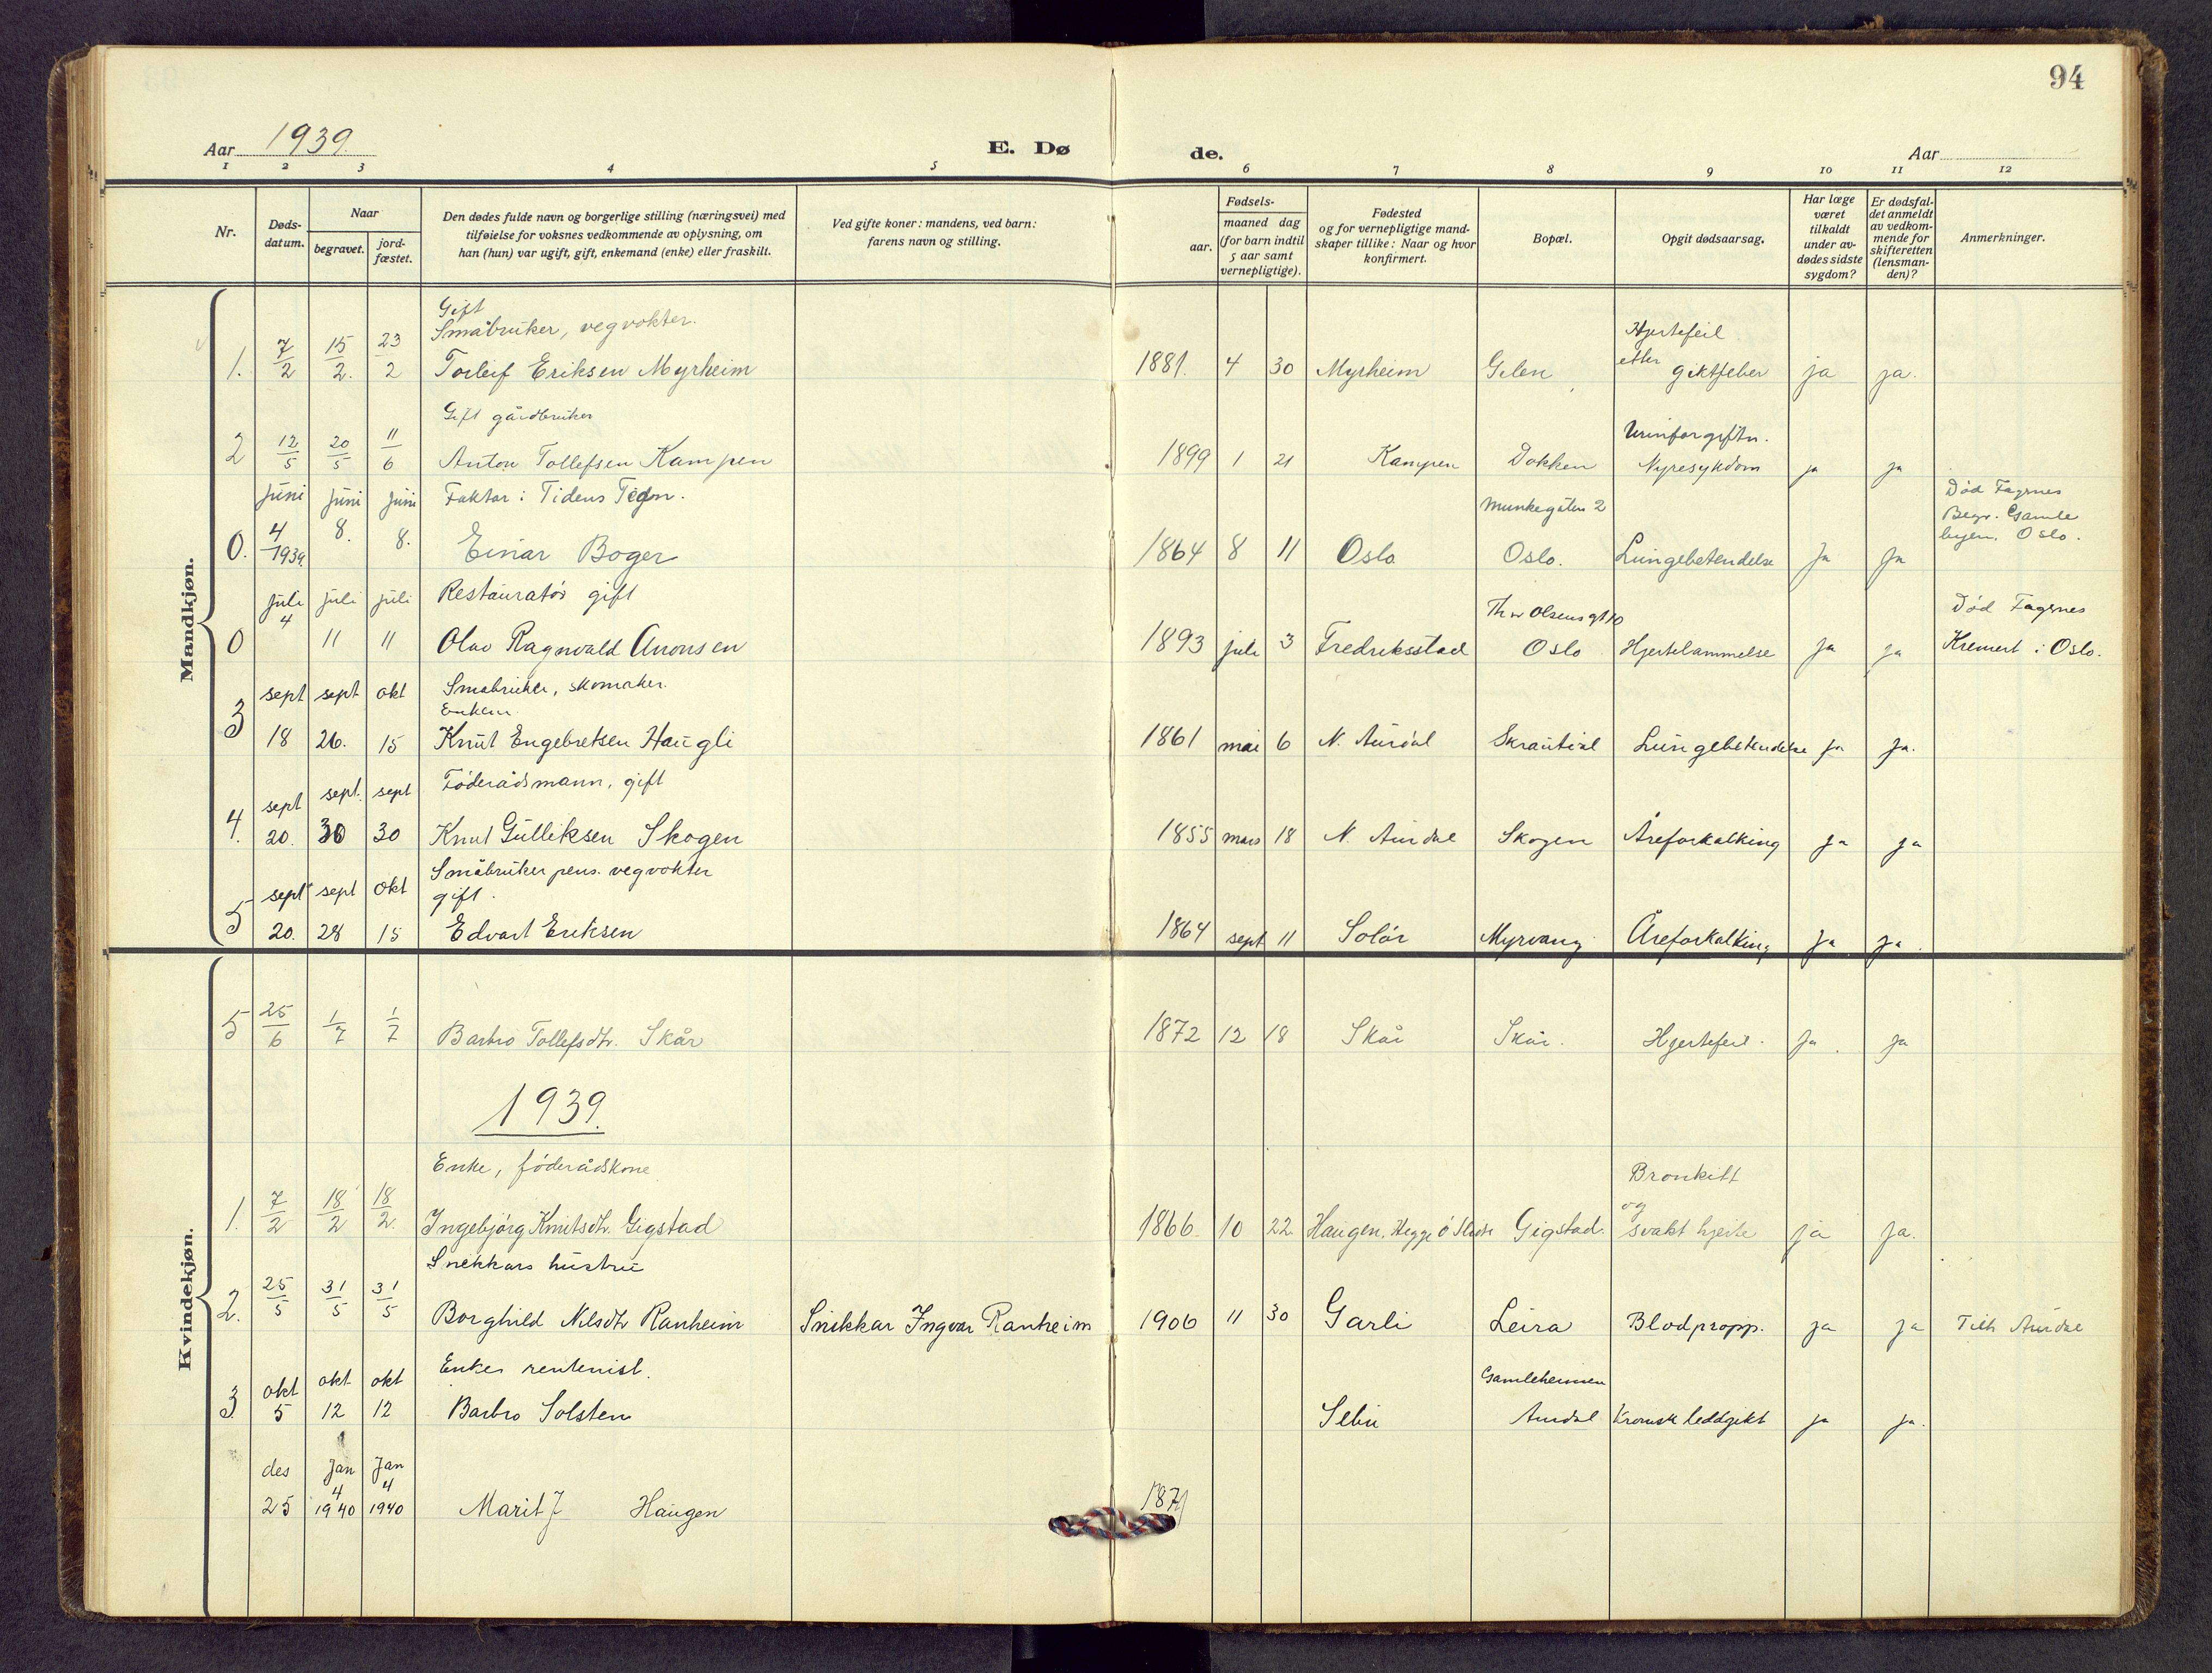 94
Aar 1939.
E. Døde.
Aar
1 2 3 4 5 6 7 8 9 10 11 12
Nr.
Døds-datum.
Naar
begravet.
jord-fæstet.
Den dødes fulde navn og borgerlige stilling (næringsvei) med
tilføielse for voksnes vedkommende av oplysning, om
han (hun) var ugift, gift, enkemand (enke) eller fraskilt.
Ved gifte koner: mandens, ved barn:
farens navn og stilling.
Fødsels-
aar.
maaned dag
(for barn indtil
5 aar samt
vernepligtige).
Fødested
og for vernepligtige mand-
skaper tillike: Naar og hvor
konfirmert.
Bopæl.
Opgit dødsaarsag.
Har læge
været
tilkaldt
under av-
dødes sidste
sygdom?
Er dødsfal-
det anmeldt
av vedkom-
mende for
skifteretten
(lensman-
den)?
Anmerkninger.
Mandkjøn.
Gift
Småbruker, vegvokter. Hjertefeil
1. 7/2 15/2. 23/2 Torleif Eriksen Myrheim 1881. 4 30 Myrheim Gilen etter giktfeber ja ja.
Gift gårdbruker Urinforgiftn.
2 12/5 20/5 11/6 Anton Tollefsen Kampen 1899 1 21 Kampen Dokken Nyresykdom ja ja
juni juni juni Faktor i Tidens Tegn. Munkegaten 2 Død Fagernes
Begr. Gamle
byen. Oslo.
0. 4/1939 8. 8. Einar Boger 1864 8 11 Oslo Oslo. Lungebetendelse Ja Ja
juli juli juli Restauratør gift Th Olsens gt 10 Død Fagernes
0 4 11 11 Olav Ragnvald Aronsen 1893 juli 3 Fredriksstad Oslo Hjertelammelse Ja ja Kremert i Oslo.
sept sept okt Småbruker, skomaker.
Enkem.
3 18 26. 15 Knut Engebretsen Haugli 1861 mai 6 N. Aurdal Skrautvål Lungebetendelse ja ja.
sept sept. sept Føderådsmann, gift
4. 20. 30 30 Knut Gulliksen Skogen 1855 mars 18 N. Aurdal Skogen Åreforkalking ja ja
sept sept okt Småbruker pens. vegvokter
gift.
5 20. 28 15 Edvart Eriksen 1864 sept 11 Solør Myrvang Åreforkalking ja ja.
Kvindekjøn.
5 25/6 1/7 1/7 Barbro Tollefsdtr. Skår 1872 12 18 Skår Skår. Hjertefeil. Ja. ja
1939.
Enke, føderådskone Bronkitt
og
1. 7/2 18/2 18/2. Ingebjørg Knutsdtr. Gigstad 1866. 10 22 Haugen, Hegge Ø Slidre Gigstad. svakt hjerte ja ja.
Snekkars hustru
2. 25/5 31/5 31/5 Borghild Nilsdtr Ranheim Snikkar Ingvar Ranheim 1906 11 30 Garli Leira Blodpropp. ja ja Tilh Aurdal
okt okt okt Enke, rentenist. Gamleheimen
3. 5 12 12 Barbro Solsten Selbu Aurdal Kronisk leddgikt ja ja.
des Jan Jan
4 4
25 1940 1940 Marit J Haugen 1871